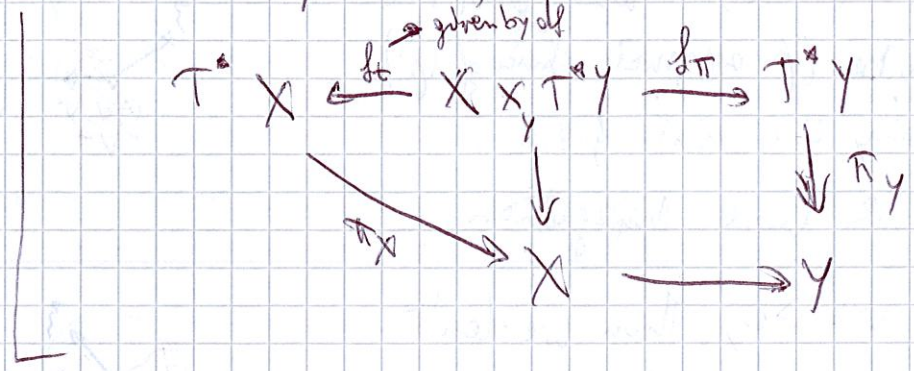 given by df
T* X ← f_t X ×_Y T* Y f_π → T* Y
π_X π_Y
X → Y